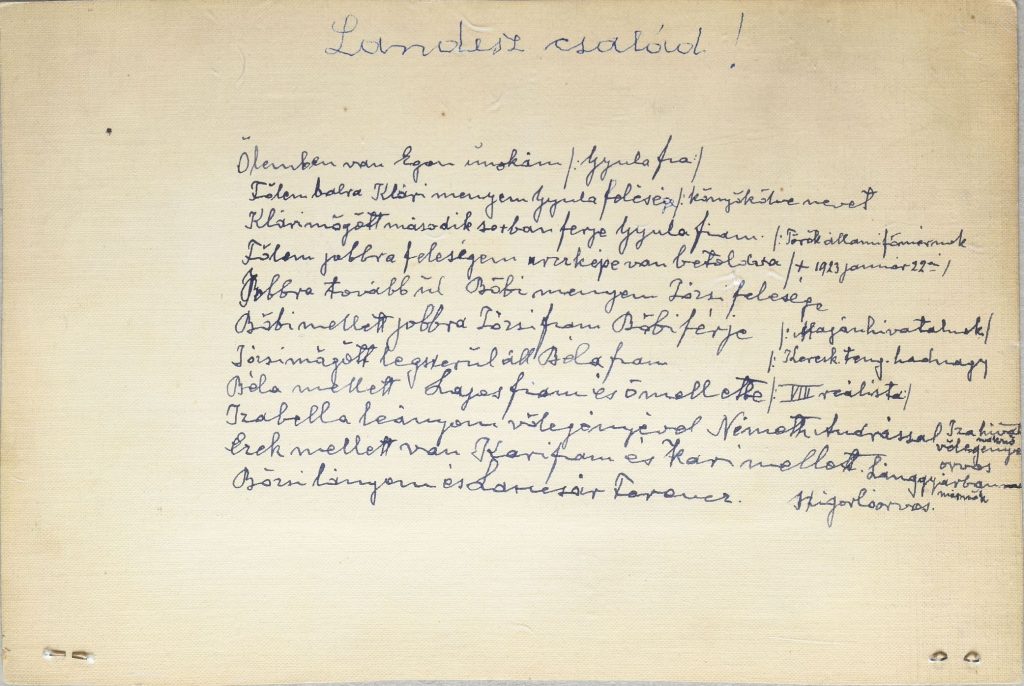 Landesz család!
Ölemben van Egon únokám /: Gyula fia :/
Tőlem balra Klári menyem Gyula felesége /: könyökölve nevet
Klári mögött második sorban férje Gyula fiam. /: Török állami főmérnök
Tőlem jobbra feleségem arcképe van betoldva /+ 1923 január 22 én /
Jobbra tovább ül Böbi menyem Józsi felesége
Böbi mellett jobbra Józsi fiam Böbi férje /: Magánhivatalnok /
Józsi mögött legszerül áll Béla fiam /: Keresk. teng. hadnagy
Béla mellett Lajos fiam és ő mellette /: VIII reálista :/
Izabella leányom vőlegényével Németh Andrással Iza
vőlegénye
orvos
Ezek mellett van Kari fiam és Kari mellett. Länggyárban
mérnök
Bözsi lányom és Ferencz.
Szigorlóorvos.